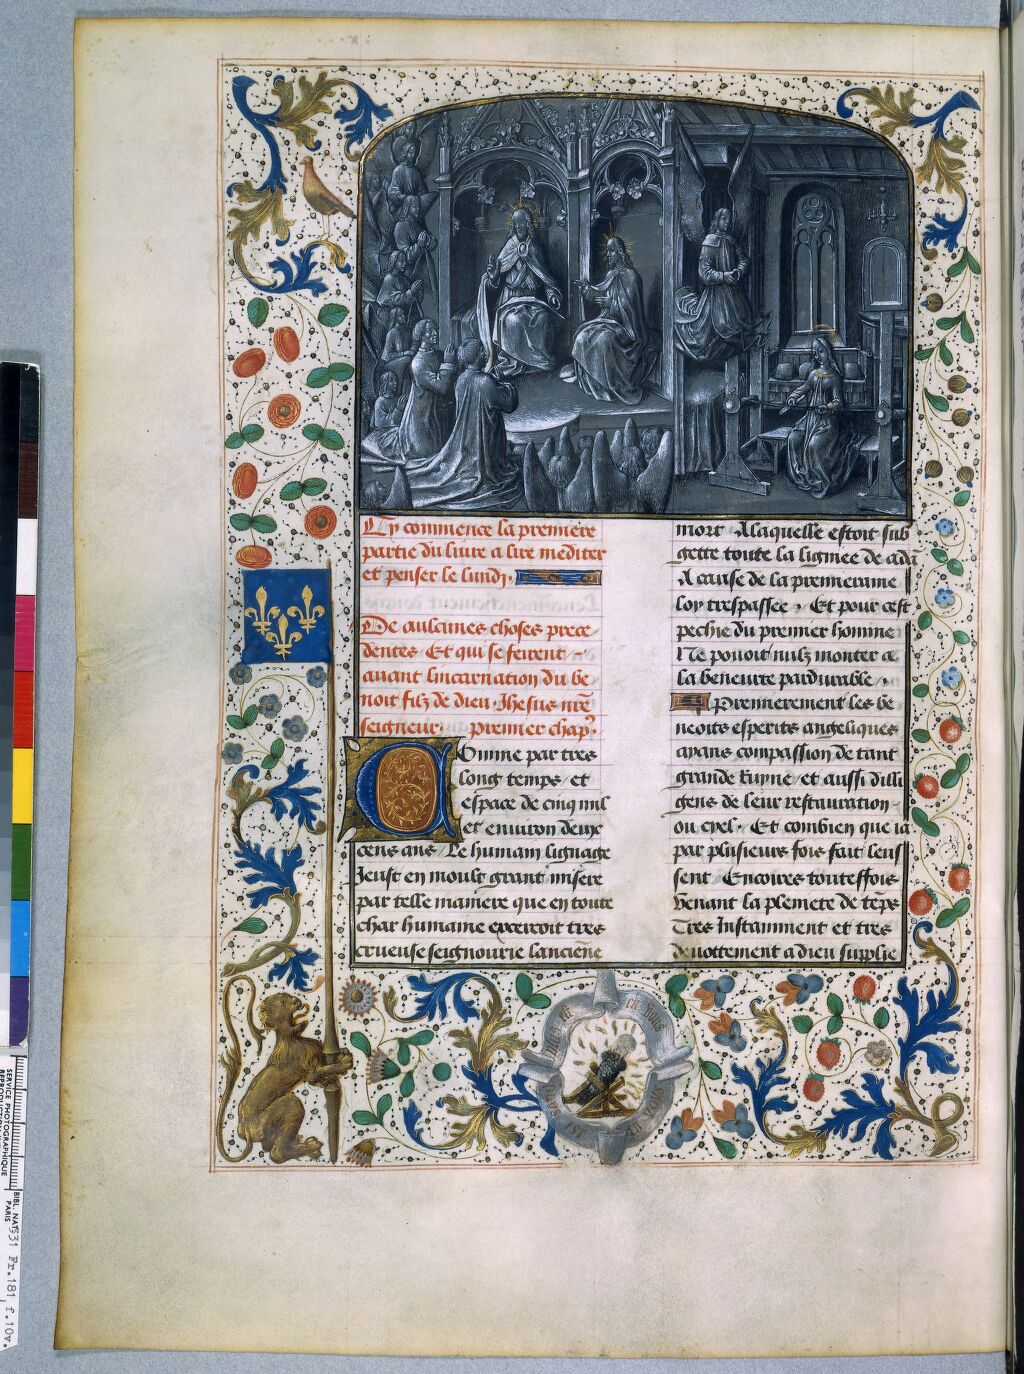 Cy commence la premiere
partie du livre a lire mediter
et penser le lundj.
De aulcunes choses prece
dentes Et qui se feirent
avant lincarnation du be
noit filz de dieu Jhesus nrē
seigneur. premier chap̄.
Comme par tres
long temps et
espace de cinq mil
et environ deux
cens ans Le humain lignage
Jeust en moult grant misere
par telle maniere que en toute
char humaine excercoit tres
crueuse seignourie lancienē
mort A laquelle estoit sub
gette toute la lignee de adā
A cause de la premeraine
loy trespassee. Et pour cest
pechie du premier homme
Ne povoit nulz monter a
la beneurte pardurable.
Premierement les be
neoits esperits angeliques
ayans compassion de tant
grande Ruyne et aussi dilli
gens de leur restauration
ou ciel. Et combien que ia
par plusieurs fois fait leus
sent Encores touteffois
venant la plenete de tēps
Tres Instamment et tres
devottement a dieu supplie
SERVICE PHOTOGRAPHIQUE
BIBL. NAT.
PARIS
Fr. 181, f. 10v.